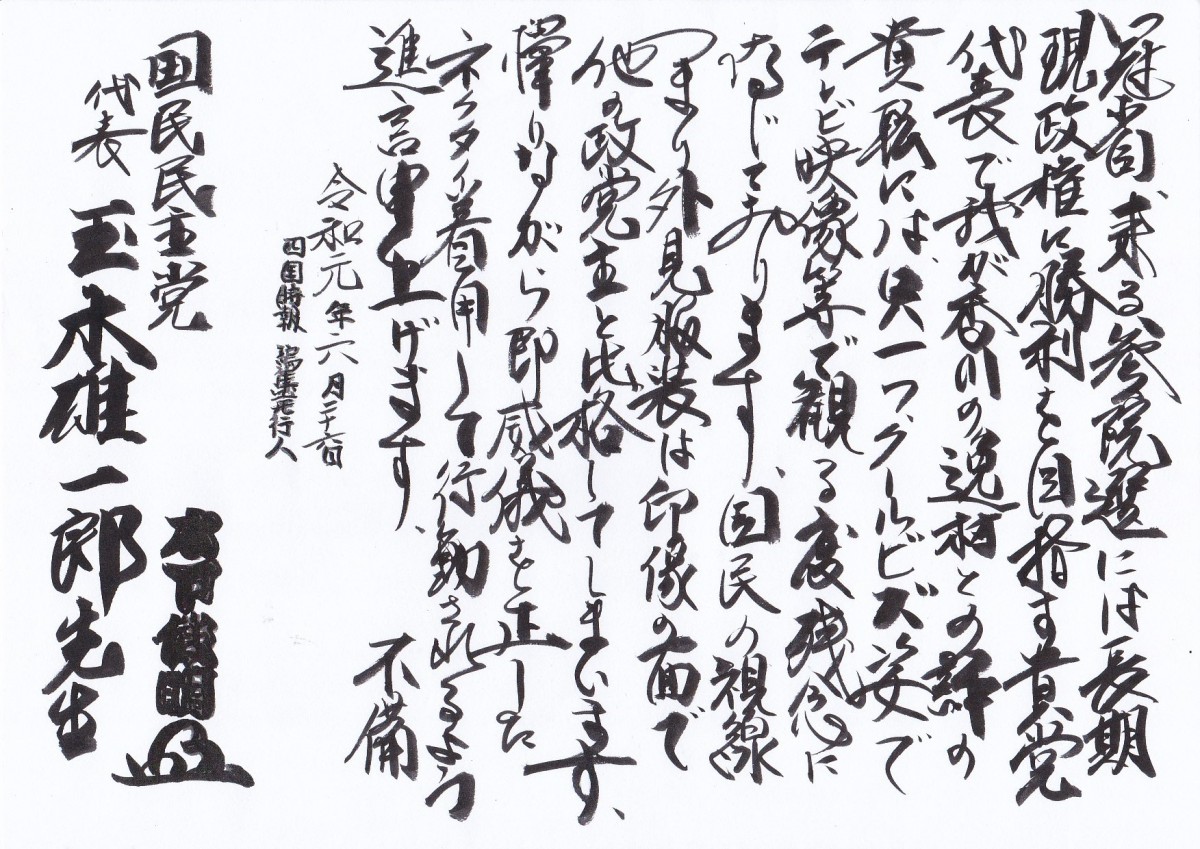 冠省 来る参院選には長期
現政権に勝利を目指す貴党
代表で我が香川の逸材との評の
貴殿には、只一つクールビズ姿で
テレビ映像等で観る度残念に
存じて居ります、国民の視線
つまり外見服装は印像の面で
他の政党主と比格してしまいます、
憚りながら即威儀を正した
ネクタイ着用して行動されるよう
進言申上げます、
不備
令和元年六月二十六日
四国時報 編集発行人
国民民主党
代表 玉木雄一郎先生